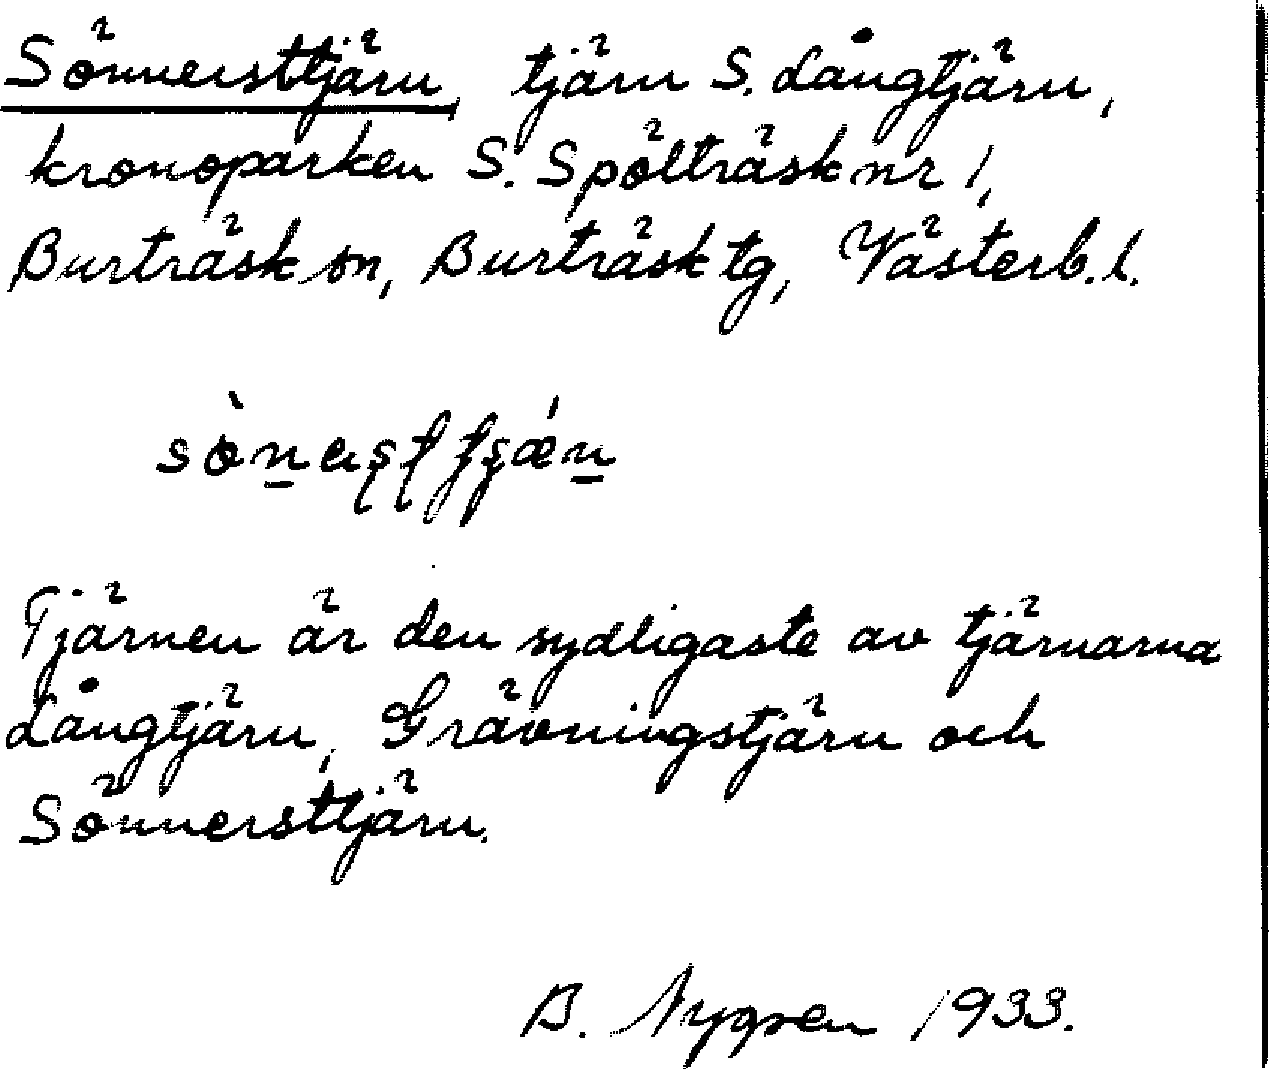 Sönnersttjärn, tjärn S. Långtjärn,
kronoparken S. Spölträsk nr 1,
Burträsk sn, Burträsk tg, Västerb. l.
Tjärnen är den sydligaste av tjärnarna
Långtjärn, Grävningstjärn och
Sönnersttjärn.
B. Nygren 1933.